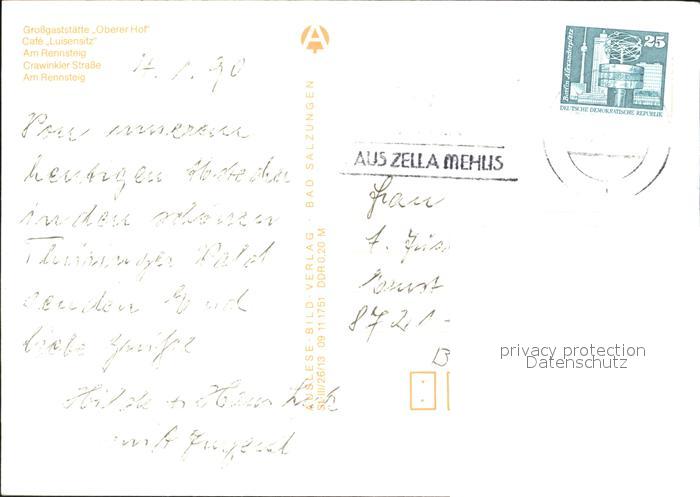 Großgaststätte „Oberer Hof"
Café „Luisensitz"
Am Rennsteig
Crawinkler Straße
Am Rennsteig
1.90
Von unserem
heutigen
in den schönen
Thüringer Wald
senden Euch
liebe Grüße
Hilde + Hans
mit Jugend
AUSLESE-BILD-VERLAG · BAD SALZUNGEN
St III/26/13 09 11 1751 DDR 0,20 M
Berlin, Alexanderplatz
25
DEUTSCHE DEMOKRATISCHE REPUBLIK
AUS ZELLA MEHLIS
Frau
Ernst
8721-
B
privacy protection
Datenschutz